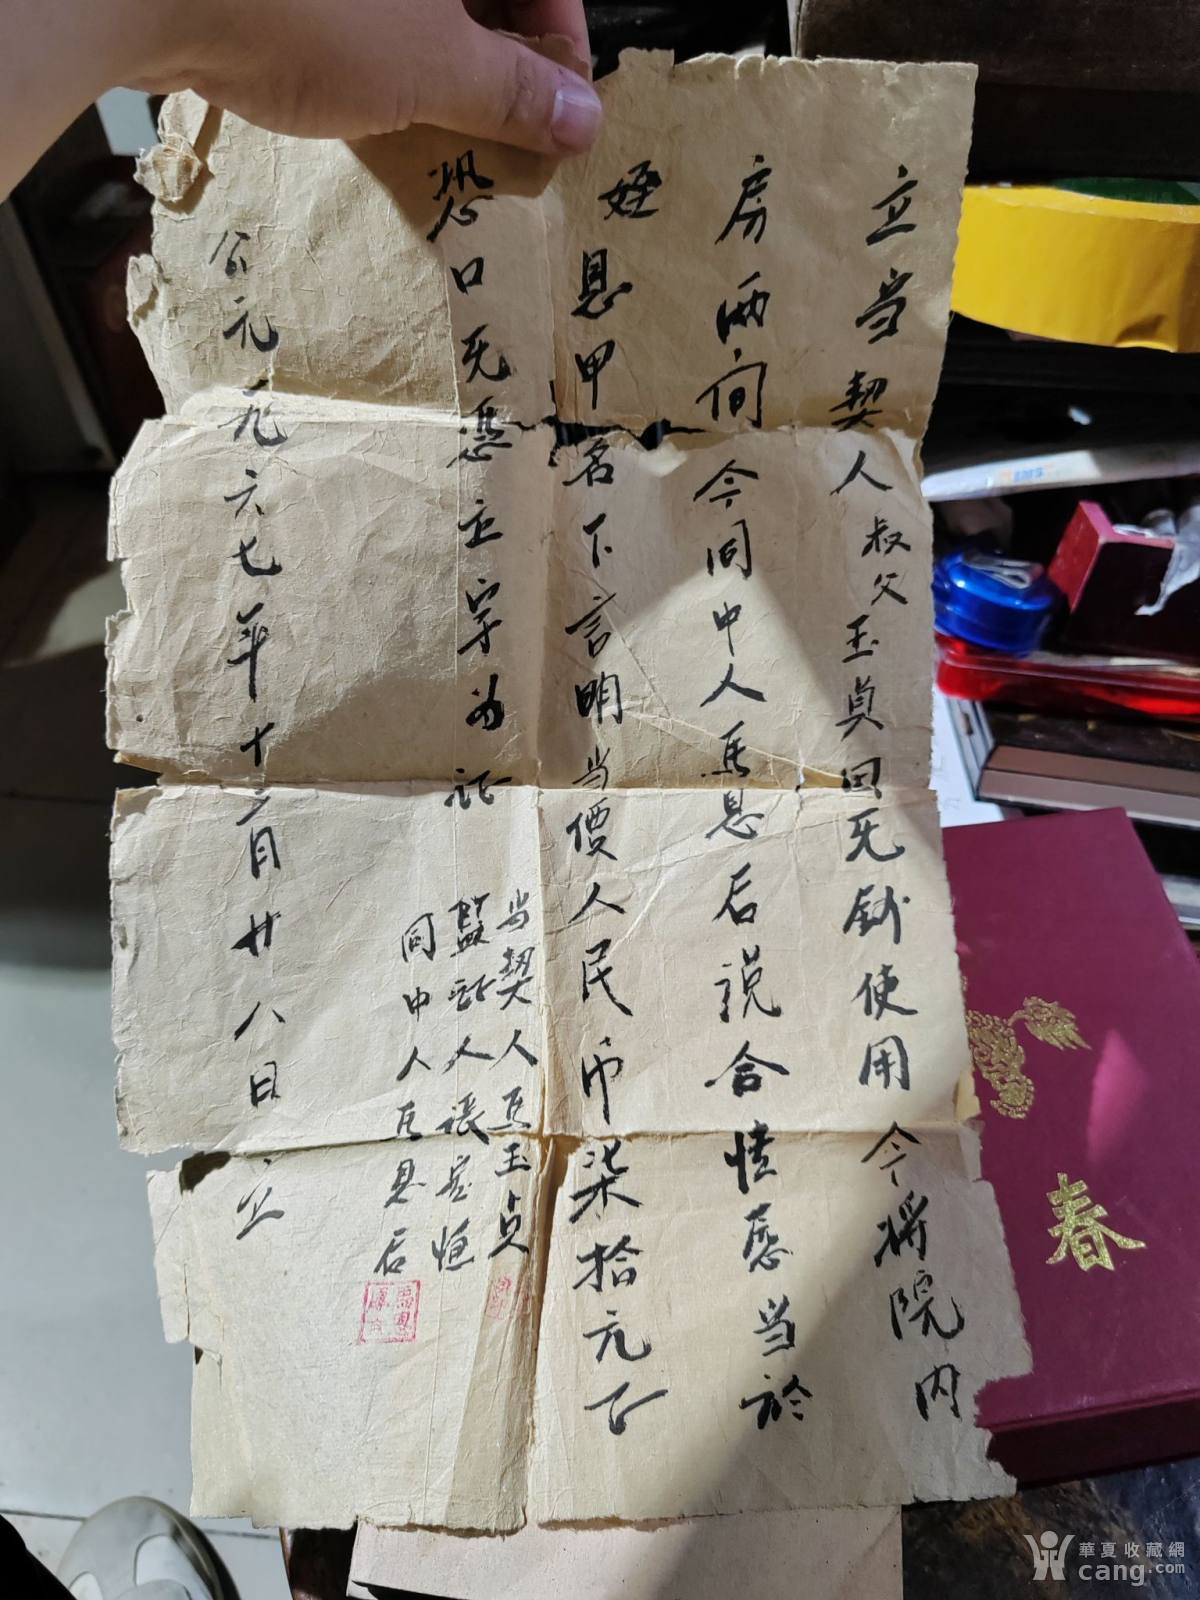 立当契人叔父玉貞因无錢使用今將院内
房两间今同中人馬恩后説合情愿当於
姪恩甲名下言明当價人民币柒拾元正
恐口无憑立字为証
当契人馬玉貞
監証人張
恒
同中人馬恩后
公元一九六七年十二月廿八日立
春
華夏收藏網
cang.com